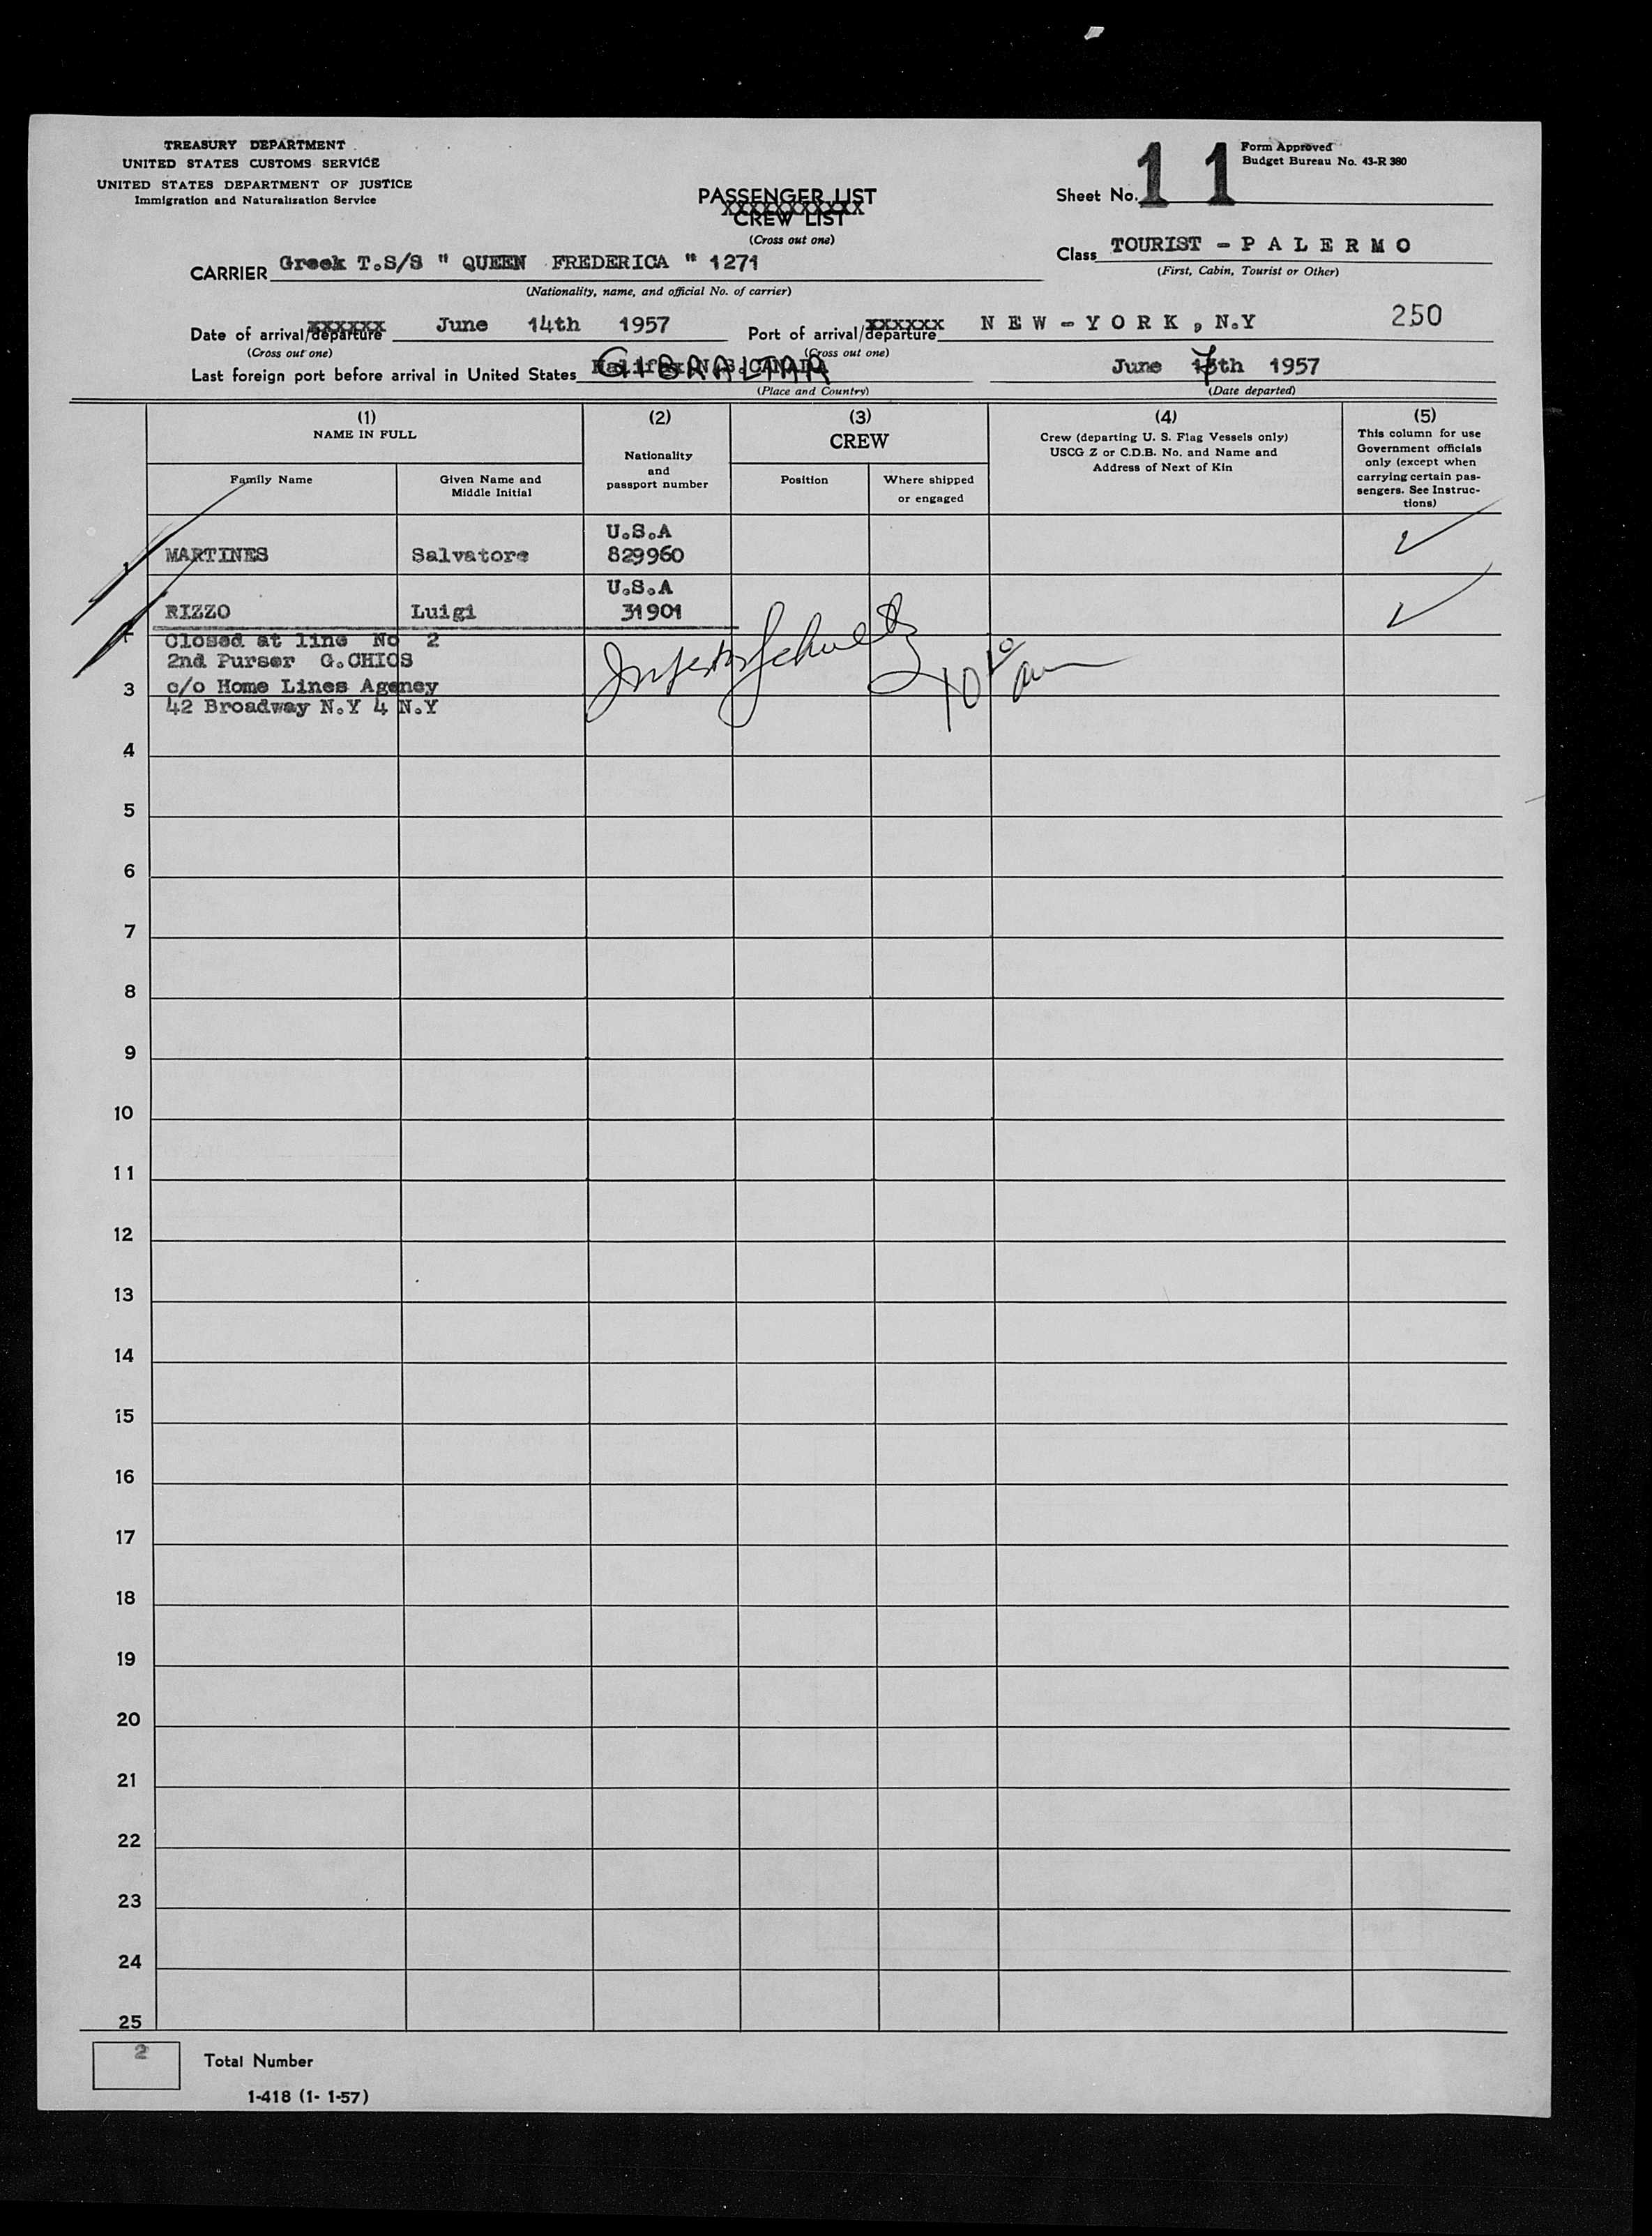 TREASURY DEPARTMENT
UNITED STATES CUSTOMS SERVICE
UNITED STATES DEPARTMENT OF JUSTICE
Immigration and Naturalization Service
Form Approved
Budget Bureau No. 43-R 380
Sheet No. 11
PASSENGER LIST
XXXXXXXXXX
CREW LIST
(Cross out one)
Class TOURIST - P A L E R M O
(First, Cabin, Tourist or Other)
CARRIER Greek T.S/S " QUEEN FREDERICA " 1271
(Nationality, name, and official No. of carrier)
Date of arrival/departure June 14th 1957 Port of arrival/departure N E W - Y O R K , N.Y 250
(Cross out one) (Cross out one)
Last foreign port before arrival in United States GIBRALTAR June 7th 1957
(Place and Country) (Date departed)
(1) (2) (3) (4) (5)
NAME IN FULL
Family Name
Given Name and
Middle Initial
Nationality
and
passport number
CREW
Position
Where shipped
or engaged
Crew (departing U. S. Flag Vessels only)
USCG Z or C.D.B. No. and Name and
Address of Next of Kin
This column for use
Government officials
only (except when
carrying certain pas-
sengers. See Instruc-
tions)
U.S.A
1 MARTINES Salvatore 829960
U.S.A
RIZZO Luigi 31901
Closed at line No 2
2nd Purser G.CHIOS
c/o Home Lines Agency
3
42 Broadway N.Y 4 N.Y
10 am
4
5
6
7
8
9
10
11
12
13
14
15
16
17
18
19
20
21
22
23
24
25
2 Total Number
1-418 (1- 1-57)